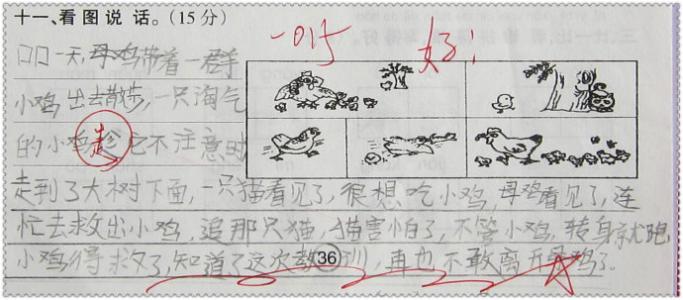 十一、看图说话。(15分)
一天,母鸡带着一群
小鸡出去散步,一只淘气
的小鸡趁它不注意时
走到了大树下面,一只猫看见了,很想吃小鸡,母鸡看见了,连
忙去救出小鸡,追那只猫,猫害怕了,不管小鸡,转身就跑
小鸡得救了,知道了这次教训,再也不敢离开母鸡了。
好!
36